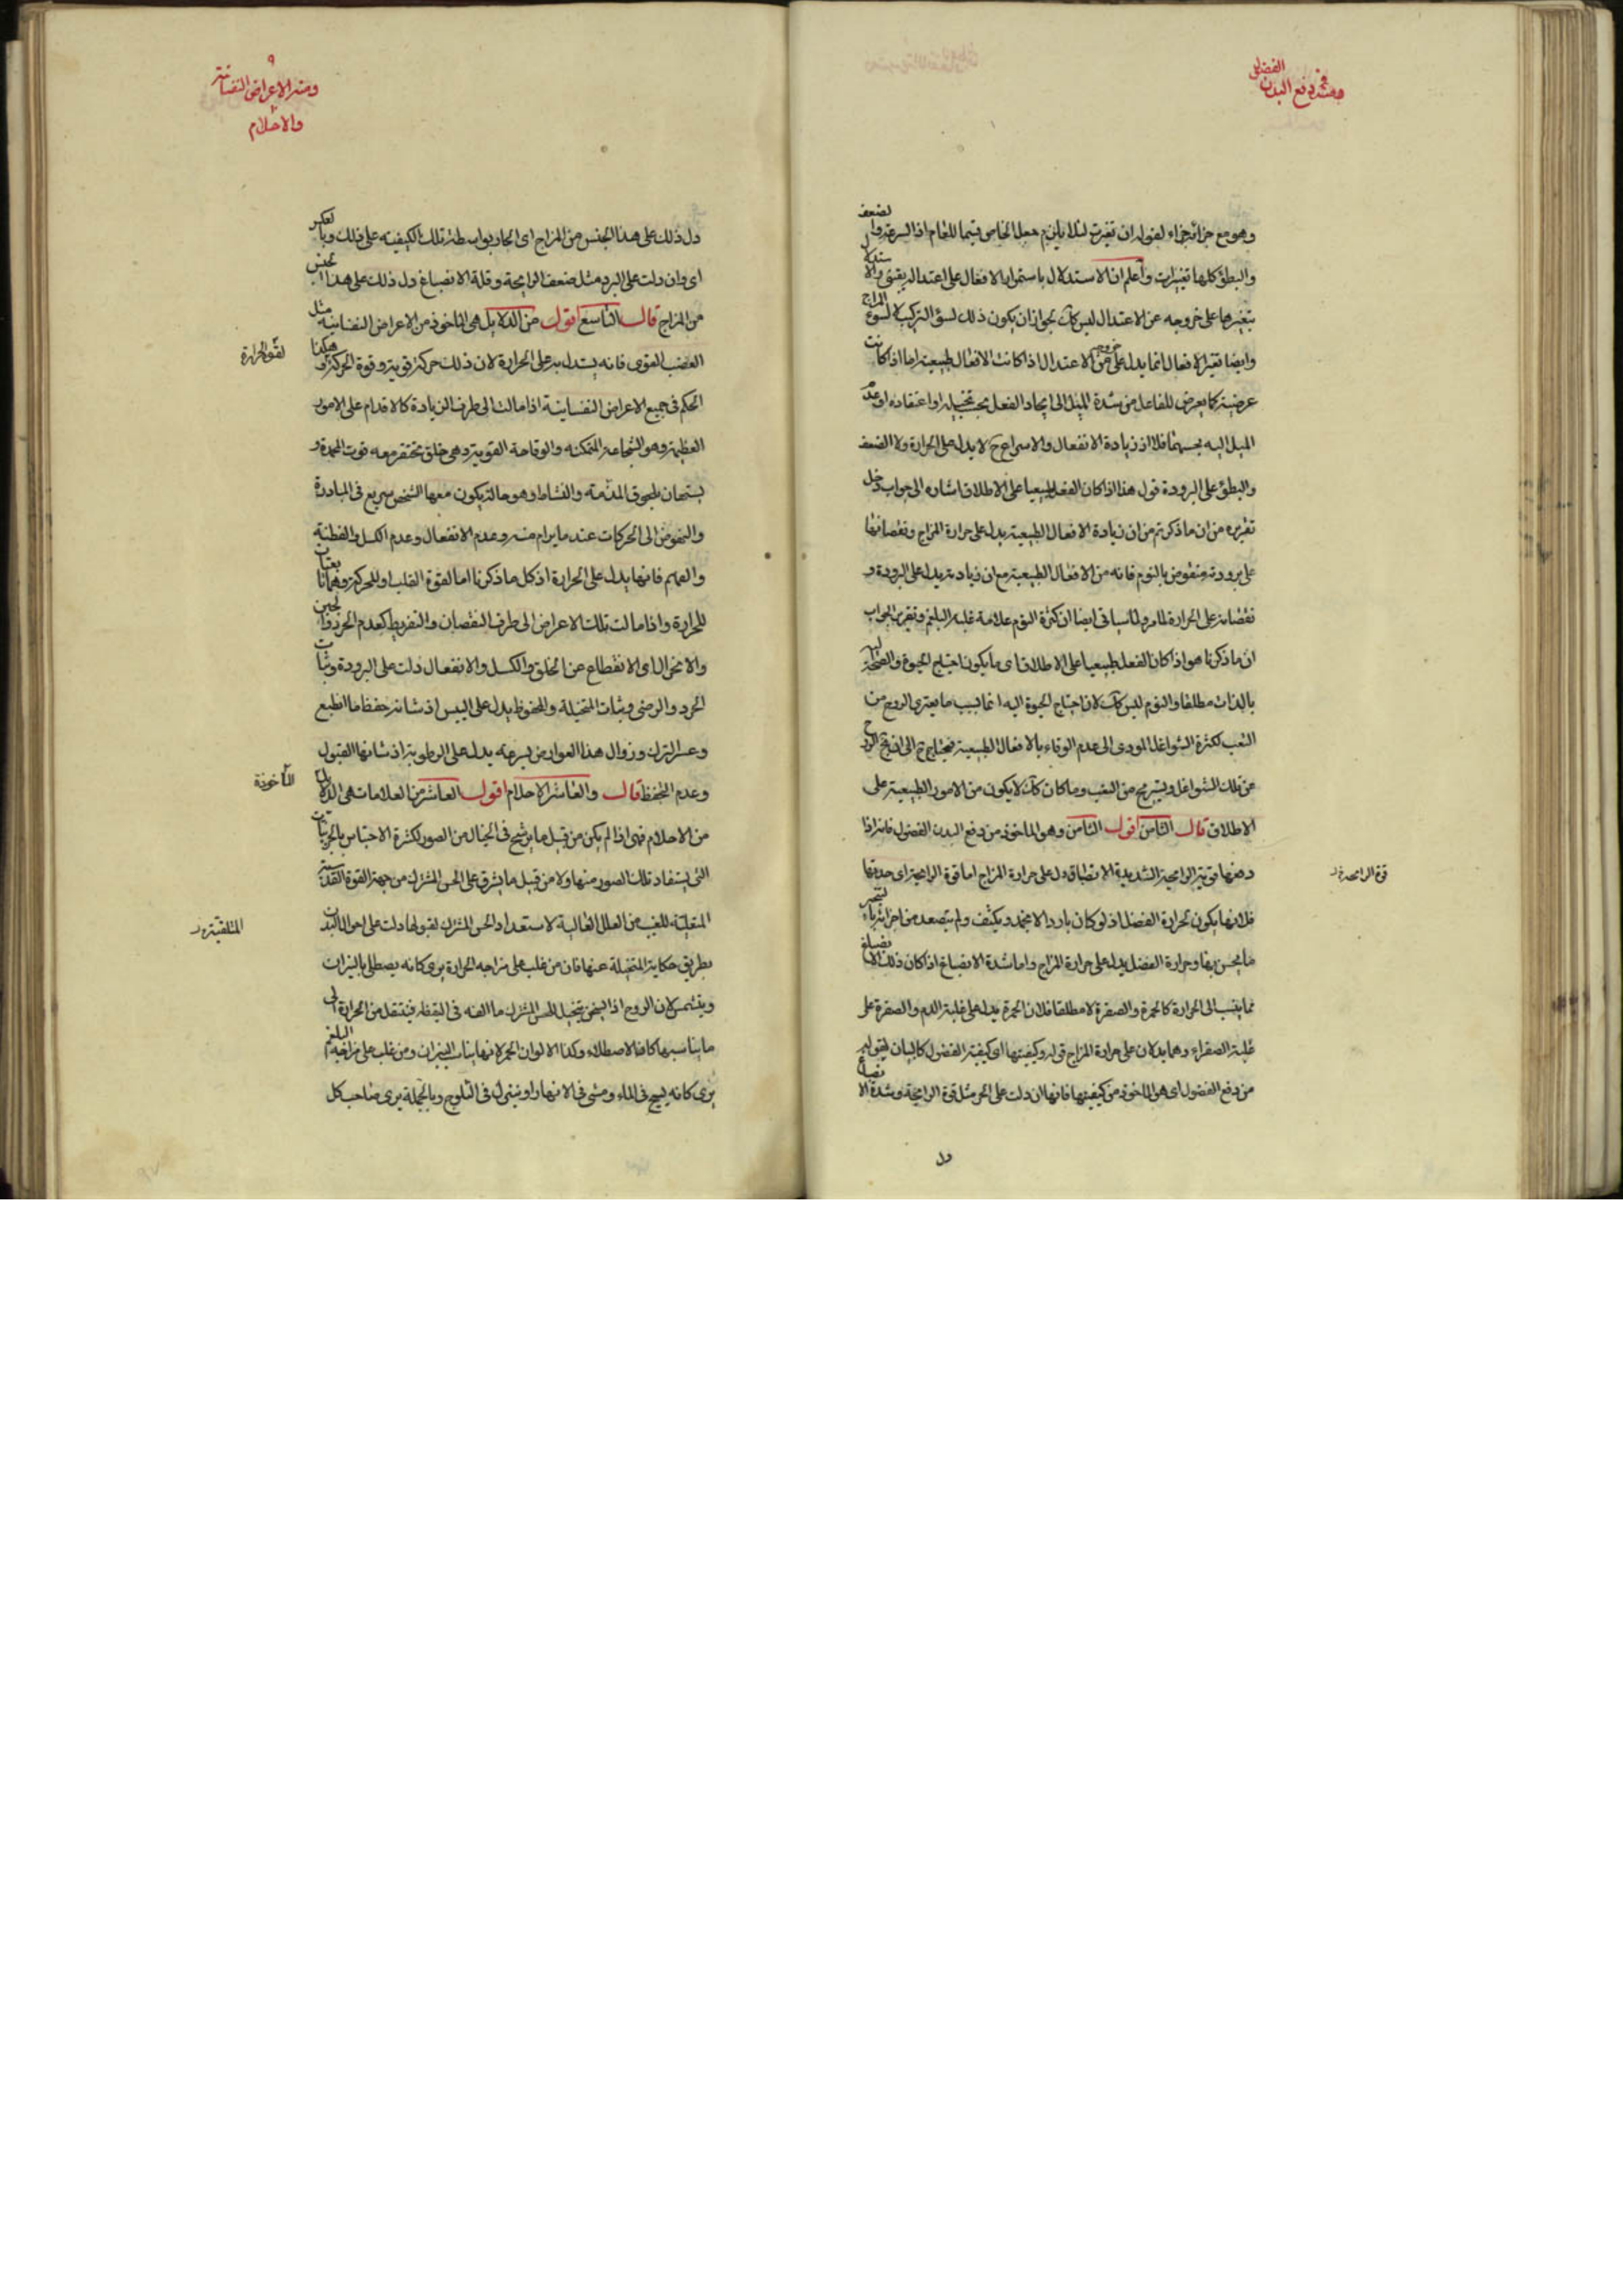 ومنه دفع البدن الفضول
وهو مع جزائه جزاء لقوله ان تغيرت لئلا يلزم جعل الخاص قيما للعام اذ السرعة والضعف
والبطؤ كلها تغيرات واعلم ان الاستدلال باستمرار الافعال على اعتداله يقيني والاستدلال
بتغيرها على خروجه عن الاعتدال ليس كك لجواز ان يكون ذلك لسوء التركيب لا لسوء المزاج
وايضا تغير الافعال انما يدل على خروجه عن الاعتدال اذا كانت الافعال طبيعية اما اذا كانت
عرضية كما يعرض للفاعل من شدة الميل الى ايجاد الفعل بحسب تخيله او اعتقاده او عدم
الميل اليه بحسبهما فلا اذ زيادة الانفعال والاسراع ح لا يدل على الحرارة ولا الضعف
والبطؤ على البرودة قوله هذا اذا كان الفعل طبيعيا على الاطلاق اشارة الى جواب دخل
تقريره من ان ما ذكرتم من ان زيادة الافعال الطبيعية يدل على حرارة المزاج ونقصانها
على برودته منقوض بالنوم فانه من الافعال الطبيعية مع ان زيادته يدل على البرودة و
نقصانه على الحرارة لما مر ولما سياتى ايضا ان كثرة النوم علامة غلبة البلغم وتقرير الجواب
ان ما ذكرنا هو اذا كان الفعل طبيعيا على الاطلاق اى ما يكون احتياج الحيوة والصحة اليه
بالذات مطلقا والنوم ليس كك لان احتياج الحيوة اليه انما بسبب ما يعترى الروح من
التعب لكثرة الشواغل المودى الى عدم الوفاء بالافعال الطبيعية فيحتاج ح الى ان الروح
عن تلك الشواغل ويستريح من التعب وما كان كك لا يكون من الامور الطبيعية على
الاطلاق قال الثامن اقول الثامن وهو الماخوذ من دفع البدن الفضول فانه اذا
دفعها قوية الرايحة الشديدة الانصباغ دل على حرارة المزاج اما قوة الرايحة اى حدتها
قوة الرايحة
فلانها يكون لحرارة الفضل اذ لو كان باردا لانجمد وتكثف ولم يتصعد من اجزائه
ما يحس بها وحرارة الفضل يدل على حرارة المزاج واما شدة الانصباغ اذا كان ذلك الانصباغ
مما ينسب الى الحرارة كالحمرة والصفرة لا مطلقا فلان الحمرة يدل على غلبة الدم والصفرة على
غلبة الصفراء وهما يدلان على حرارة المزاج قوله وكيفيتها اى كيفية الفضول كالبيان لقوله
من دفع الفضول اى هو الماخوذ من كيفيتها فانها ان دلت على الحر مثل قوة الرايحة وشدة الانصباغ
دل
٩
ومنه الاعراض النفسانية
والاحلام
دل ذلك على هذا الجنس من المزاج اى الحار بواسطة تلك الكيفية على ذلك وبالعكس
اى وان دلت على البرد مثل ضعف الرايحة وقلة الانصباغ دل ذلك على هذا الجنس
من المزاج قال التاسع اقول من الدلايل هى الماخوذ من الاعراض النفسانية مثل
الغضب القوى فانه يستدل به على الحرارة لان ذلك حركة قوية وقوة الحركة وهكذا
لقوة الحرارة
الحكم فى جميع الاعراض النفسانية اذا مالت الى طرف الزيادة كالاقدام على الامور
العظيمة وهو الشجاعة المتمكنة والوقاحة القوية وهى خلق تحتقر معه فوت المحمدة و
يستهان بلحوق المذمة والنشاط وهو حالة يكون معها الشخص سريع فى المبادرة
والنهوض الى الحركات عند ما يرام منه وعدم الانفعال وعدم الكسل والفطنة
والفهم فانها يدل على الحرارة اذ كل ما ذكرنا اما لقوة القلب او للحركة وهما تابعتان
للحرارة واذا مالت تلك الاعراض الى طرف النقصان والتفريط كعدم الحرد والجبن
والانخزال اى الانقطاع عن الخلق والكسل والانفعال دلت على البرودة وثبات
الحرد والرضى وثبات المتخيلة والمحفوظ يدل على اليبس اذ شانه حفظ ما انطبع
وعسر الترك وزوال هذا العوارض بسرعة يدل على الرطوبة اذ شانها القبول
وعدم الحفظ قال والعاشر الاحلام اقول العاشر من العلامات هى الدلايل
الماخوذة
من الاحلام فهى اذا لم يكن من قبيل ما يرشح فى الخيال من الصور لكثرة الاحساس بالجزئيات
التى يستفاد تلك الصور منها ولا من قبيل ما يشرق على الحس المشترك من جهة القوة القدسية
المتلقية للغيب من العلل الغالبة لاستعداد الحس المشترك لقبولها دلت على احوال البدن
المتلقية
بطريق حكاية المتخيلة عنها فان من غلب على مزاجه الحرارة يرى كانه يصطلى بالنيران
ويتشمس لان الروح اذا تسخن يتخيل للحس المشترك ما الفه فى اليقظة فينتقل من الحرارة الى
ما يناسبها كافة الاصطلاء وكذا الالوان الحمر لانها يناسب النيران ومن غلب على مزاجه البلغم
يرى كانه يسبح فى الماء ومشى فى الانهار او ينزل فى الثلوج وبالجملة يرى صاحب كل